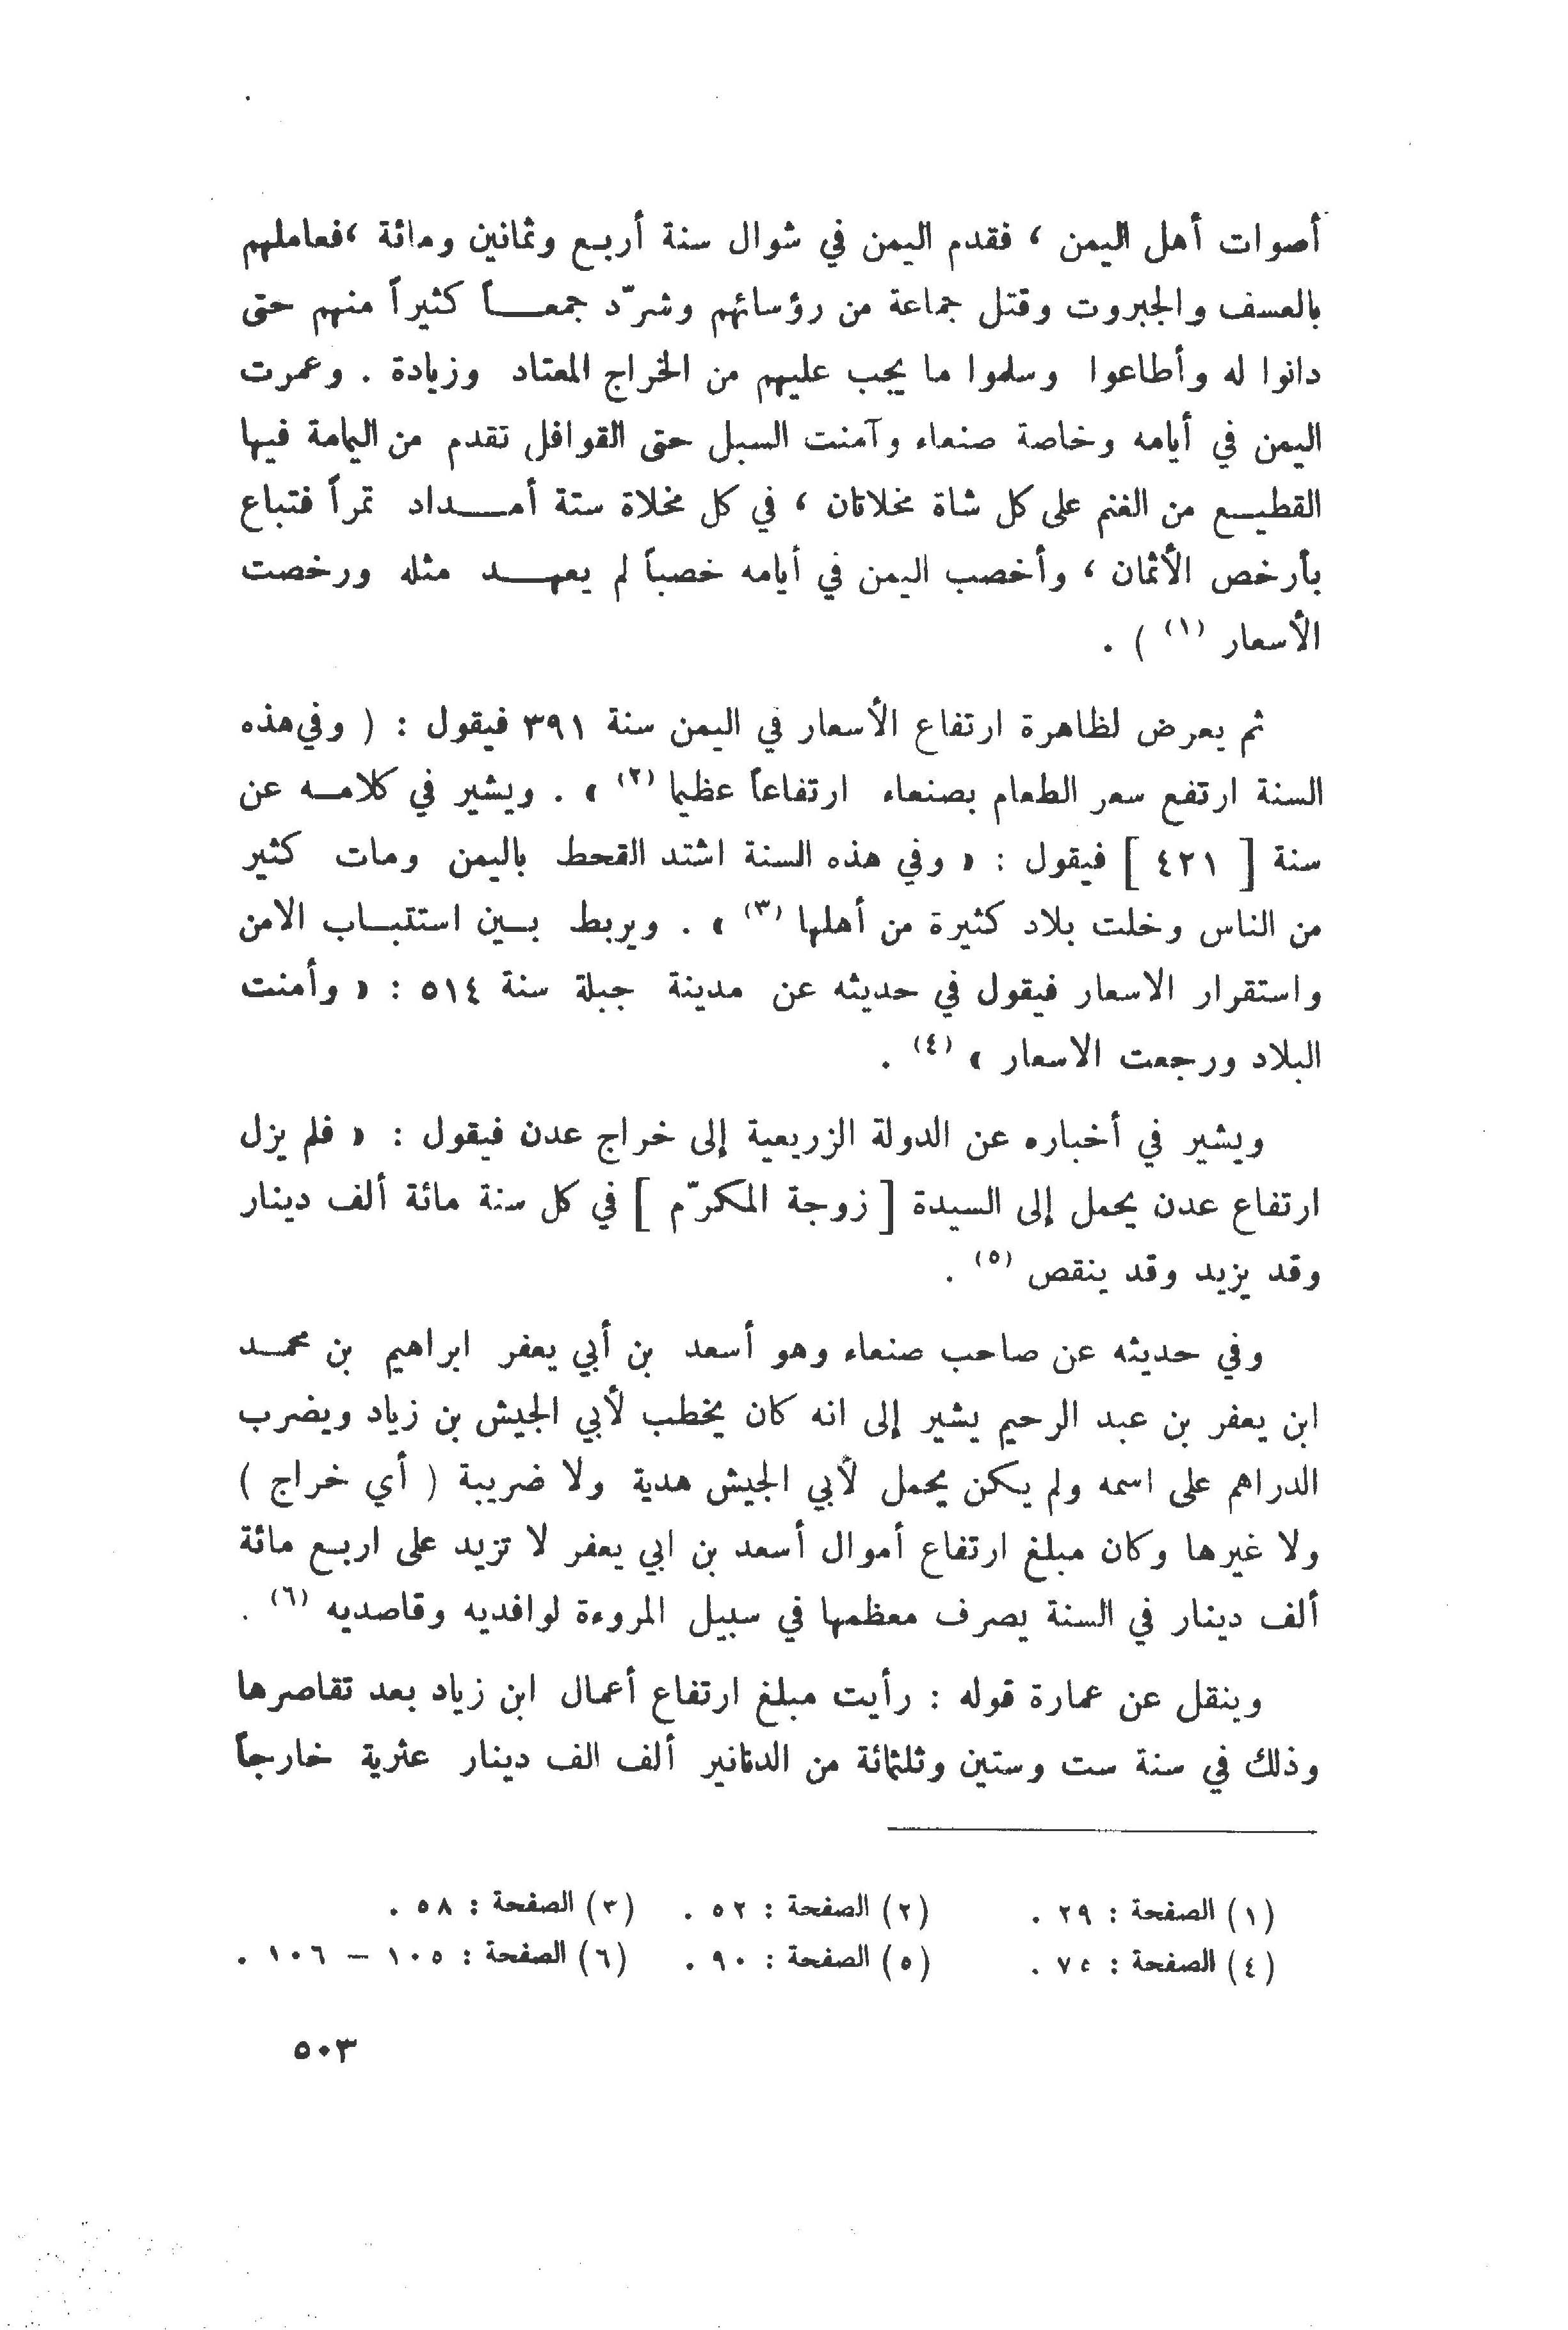 أصوات أهل اليمن ، فقدم اليمن في شوال سنة أربع وثمانين ومائة ،فعاملهم
بالعسف والجبروت وقتل جماعة من رؤسائهم وشرّد جمعاً كثيراً منهم حتى
دانوا له وأطاعوا وسلموا ما يجب عليهم من الخراج المعتاد وزيادة . وعمرت
اليمن في أيامه وخاصة صنعاء وآمنت السبل حتى القوافل تقدم من اليمامة فيها
القطيع من الغنم على كل شاة مخلاتان ، في كل مخلاة ستة أمداد تمراً فتباع
بأرخص الأثمان ، وأخصب اليمن في أيامه خصباً لم يعهد مثله ورخصت
الأسعار (١) ) .
ثم يعرض لظاهرة ارتفاع الأسعار في اليمن سنة ٣٩١ فيقول : ( وفي هذه
السنة ارتفع سعر الطعام بصنعاء ارتفاعاً عظيما (٢) » . ويشير في كلامه عن
سنة [ ٤٢١ ] فيقول : « وفي هذه السنة اشتد القحط باليمن ومات كثير
من الناس وخلت بلاد كثيرة من أهلها (٣) » . ويربط بين استتباب الامن
واستقرار الاسعار فيقول في حديثه عن مدينة جبلة سنة ٥١٤ : « وأمنت
البلاد ورجعت الاسعار » (٤) .
ويشير في أخباره عن الدولة الزريعية إلى خراج عدن فيقول : « فلم يزل
ارتفاع عدن يحمل إلى السيدة [ زوجة المكرّم ] في كل سنة مائة ألف دينار
وقد يزيد وقد ينقص (٥) .
وفي حديثه عن صاحب صنعاء وهو أسعد بن أبي يعفر ابراهيم بن محمد
ابن يعفر بن عبد الرحيم يشير إلى انه كان يخطب لأبي الجيش بن زياد ويضرب
الدراهم على اسمه ولم يكن يحمل لأبي الجيش هدية ولا ضريبة ( أي خراج )
ولا غيرها وكان مبلغ ارتفاع أموال أسعد بن ابي يعفر لا تزيد على اربع مائة
ألف دينار في السنة يصرف معظمها في سبيل المروءة لوافديه وقاصديه (٦) .
وينقل عن عمارة قوله : رأيت مبلغ ارتفاع أعمال ابن زياد بعد تقاصرها
وذلك في سنة ست وستين وثلثمائة من الدنانير ألف الف دينار عثرية خارجاً
(١) الصفحة : ٢٩ . (٢) الصفحة : ٥٢ . (٣) الصفحة : ٥٨ .
(٤) الصفحة : ٧٥ . (٥) الصفحة : ٩٠ . (٦) الصفحة : ١٠٥ – ١٠٦ .
٥٠٣